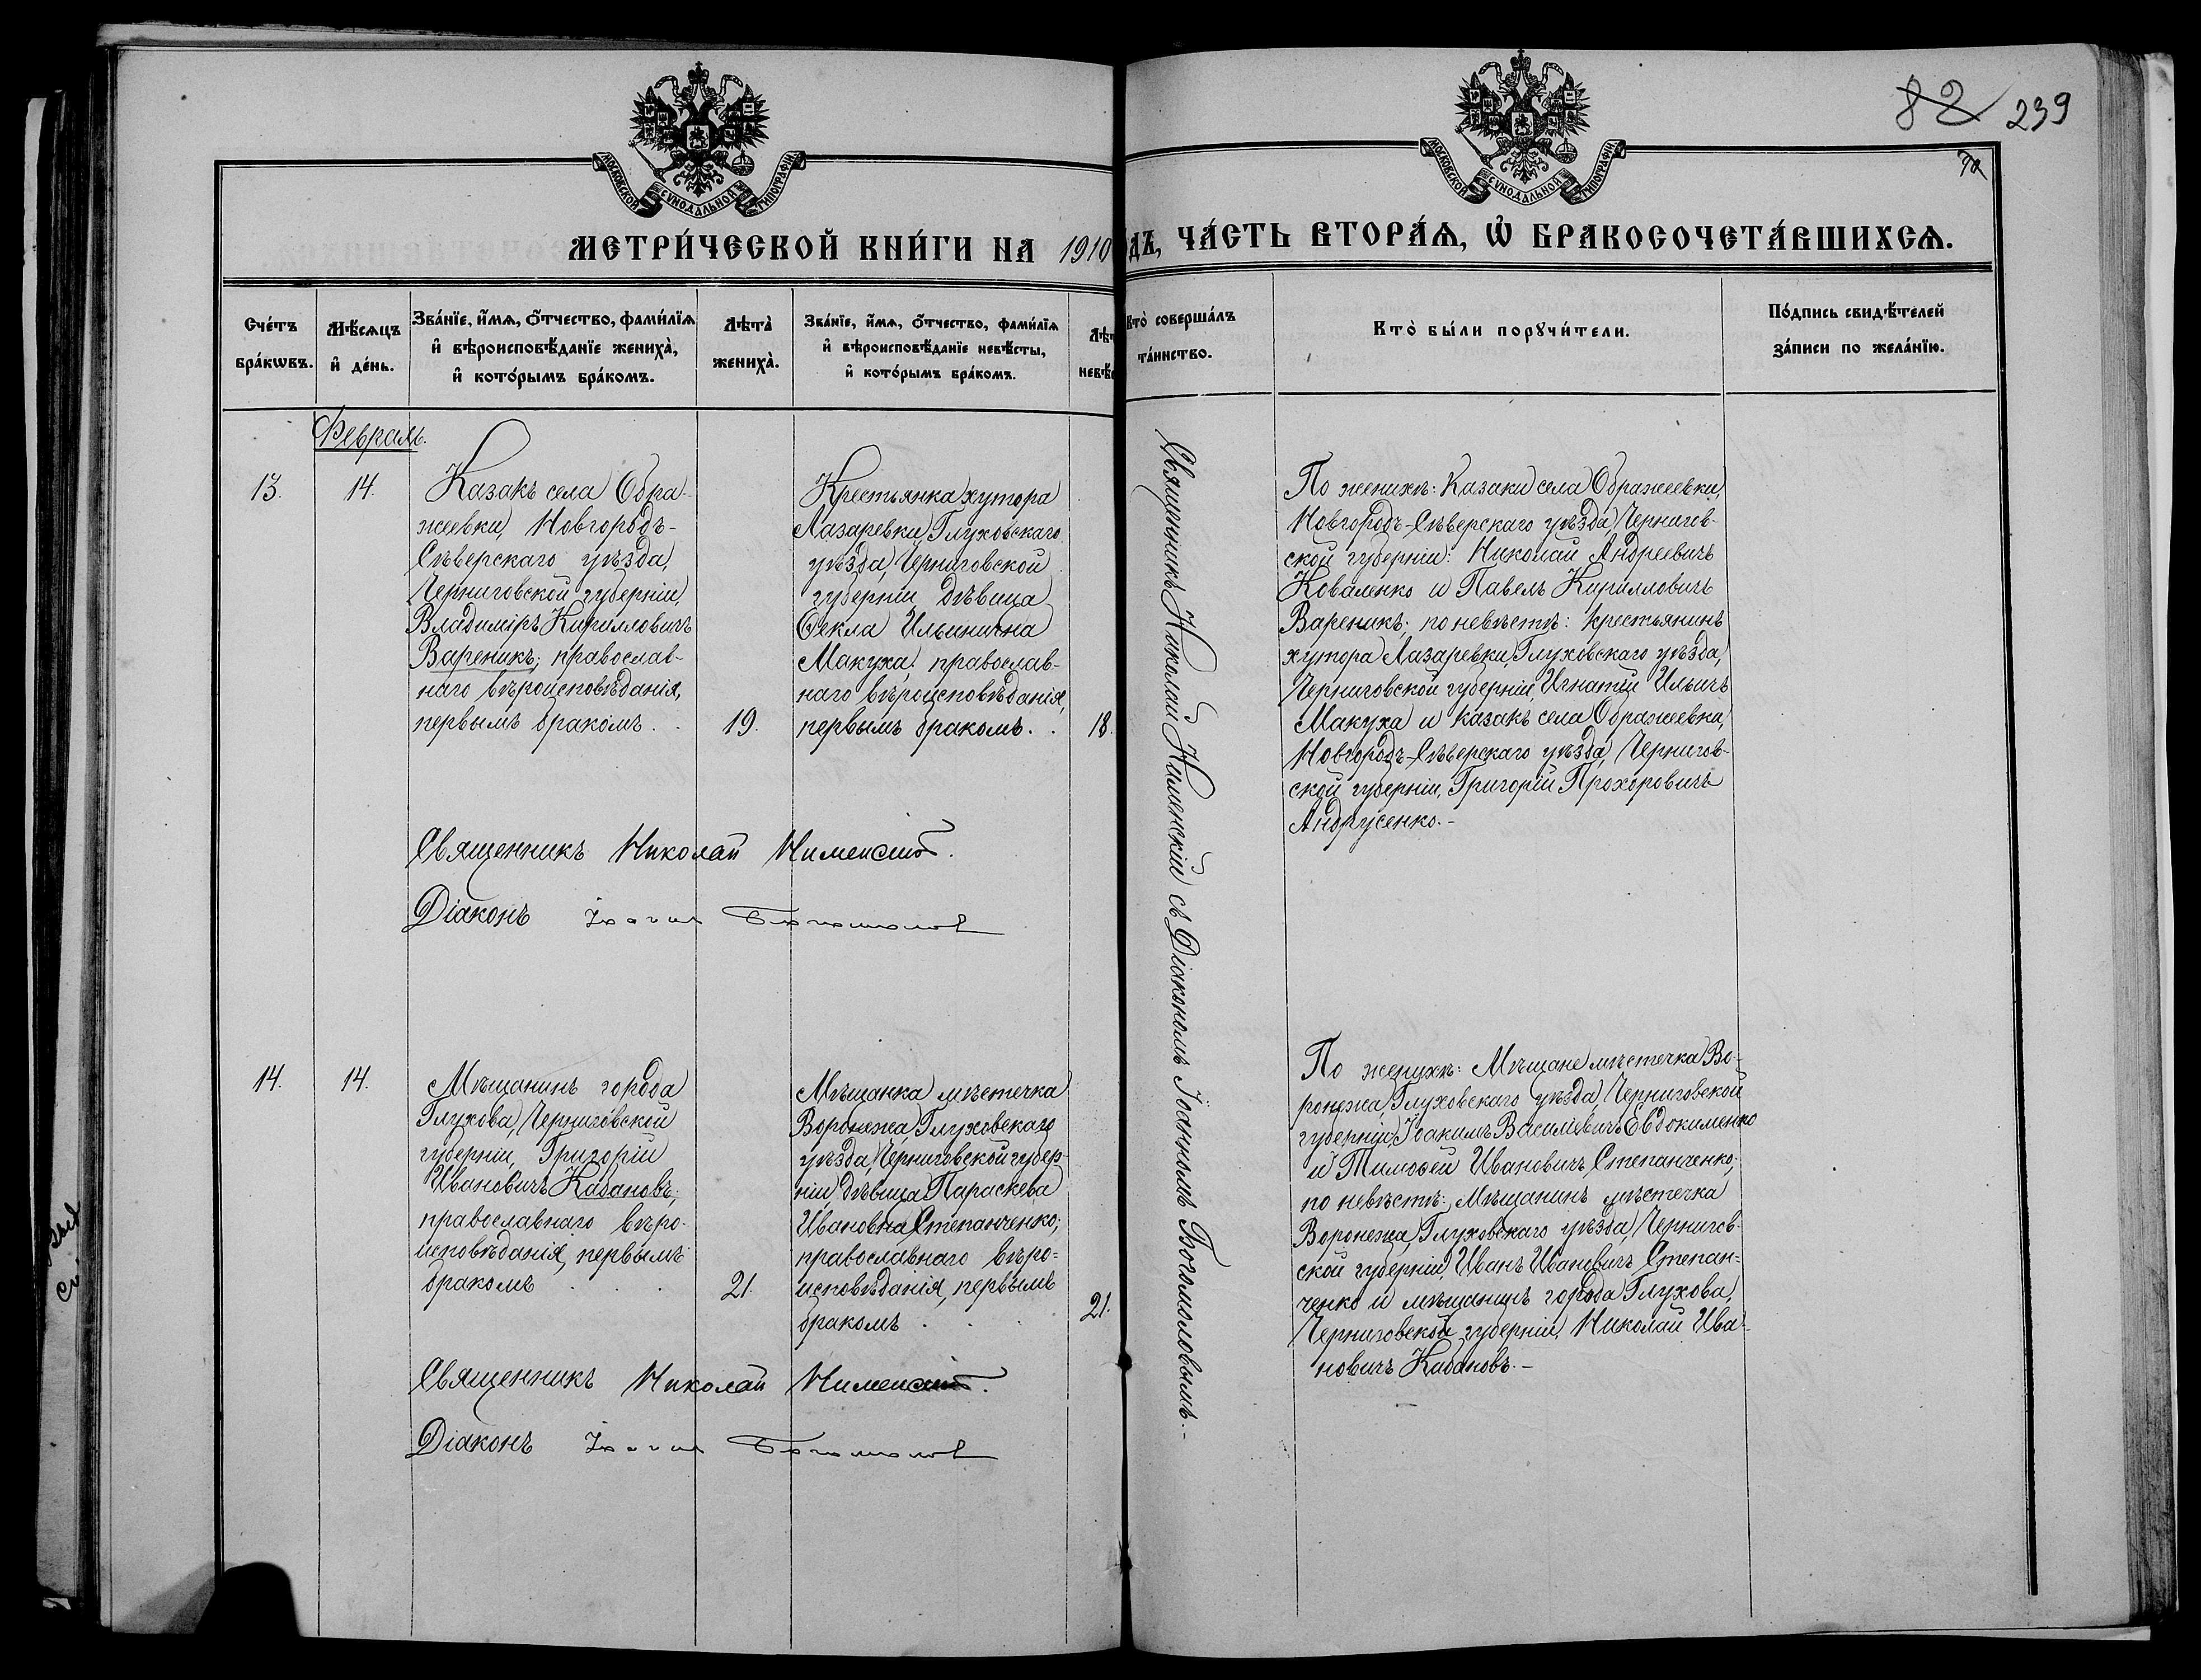 82 239
МОСКОВСКОЙ СУНОДАЛЬНОЙ ТИПОГРАФІИ
МОСКОВСКОЙ СУНОДАЛЬНОЙ ТИПОГРАФІИ
МЕТРИ́ЧЕСКОЙ КНИ́ГИ НА 1910
ДЪ, ЧА́СТЬ ВТОРА́Ѧ, Ѡ҆ БРАКОСОЧЕТА́ВШИХСѦ.
Сче́тъ
бра́кωвъ.
Мѣ́сѧцъ
и҆ де́нь.
Зва́нїе, и҆́мѧ, ѻ҆́тчество, фами́лїѧ
и҆ вѣроисповѣ́данїе жениха̀,
и҆ кото́рымъ бра́комъ.
Лѣта̀
жениха̀.
Зва́нїе, и҆́мѧ, ѻ҆́тчество, фами́лїѧ
и҆ вѣроисповѣ́данїе невѣ́сты,
и҆ кото́рымъ бра́комъ.
Лѣт
невѣ́с
Кто̀ соверша́лъ
та́инство.
Кто̀ бы́ли порꙋчи́тели.
По́дпись свидѣ́телей
за́писи по жела́нїю.
Февраль.
13.
14.
Казакъ села Обра-
жеевки, Новгородъ-
Сѣверскаго уѣзда,
Черниговской губерніи,
Владиміръ Кирилловичъ
Вареникъ; православ-
наго вѣроисповѣданія,
первымъ бракомъ . .
19.
Крестьянка хутора
Лазаревки, Глуховскаго
уѣзда, Черниговской
губерніи, дѣвица
Ѳекла Ильинична
Макуха, православ-
наго вѣроисповѣданія,
первымъ бракомъ. .
18.
Священникъ Николай Нименскій съ Діакономъ Іоанномъ Богомоловымъ.-
По женихѣ: Казаки села Ображеевки,
Новгородъ-Сѣверскаго уѣзда, Чернигов-
ской губерніи: Николай Андреевичъ
Коваленко и Павелъ Кирилловичъ
Вареникъ; по невѣстѣ: крестьянинъ
хутора Лазаревки, Глуховскаго уѣзда,
Черниговской губерніи, Игнатій Ильичъ
Макуха и казакъ села Ображеевки,
Новгородъ-Сѣверскаго уѣзда, Чернигов-
ской губерніи, Григорій Прохоровичъ
Андрусенко.-
Священникъ Николай Нименскій.
Діаконъ Іоаннъ Богомоловъ
14.
14.
Мѣщанинъ города
Глухова, Черниговской
губерніи, Григорій
Ивановичъ Кабановъ;
православнаго вѣро-
исповѣданія, первымъ
бракомъ . . .
21.
Мѣщанка мѣстечка
Воронежа, Глуховскаго
уѣзда, Черниговской губер-
ніи дѣвица Параскева
Ивановна Степанченко;
православнаго вѣро=
исповѣданія, первымъ
бракомъ . . .
21.
По женихѣ: Мѣщане мѣстечка Во-
ронежа, Глуховскаго уѣзда, Черниговской
губерніи, Іоакимъ Василіевичъ Евдокименко
и Тимоѳей Ивановичъ Степанченко;
по невѣстѣ: Мѣщанинъ мѣстечка
Воронежа, Глуховскаго уѣзда, Чернигов-
ской губерніи, Иванъ Ивановичъ Степан-
ченко и мѣщанинъ города Глухова,
Черниговской губерніи, Николай Ива-
новичъ Кабановъ.-
Священникъ Николай Нименскій.
Діаконъ Іоаннъ Богомоловъ